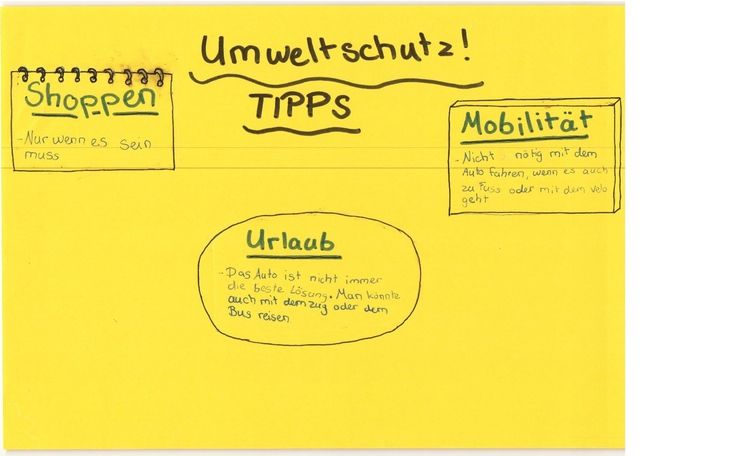 Umweltschutz!
TIPPS
Shoppen
- Nur wenn es sein
muss
Mobilität
- Nicht nötig mit dem
Auto fahren, wenn es auch
zu Fuss oder mit dem velo
geht
Urlaub
- Das Auto ist nicht immer
die beste Lösung. Man könnte
auch mit dem zug oder dem
Bus reisen